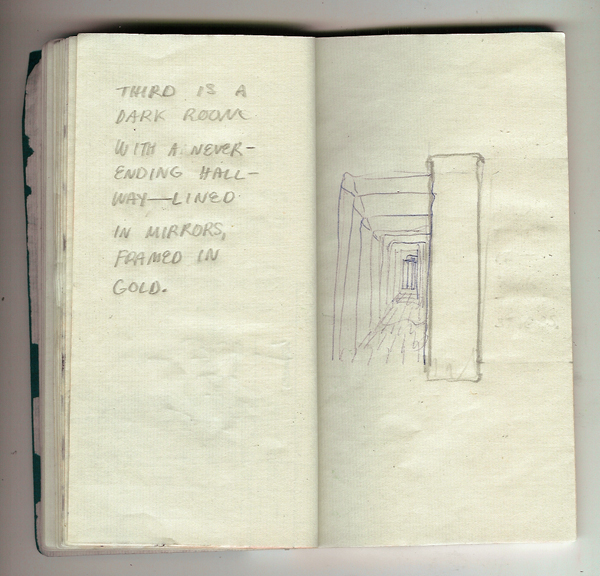 THIRD IS A
DARK ROOM
WITH A NEVER-
ENDING HALL-
WAY—LINED
IN MIRRORS,
FRAMED IN
GOLD.